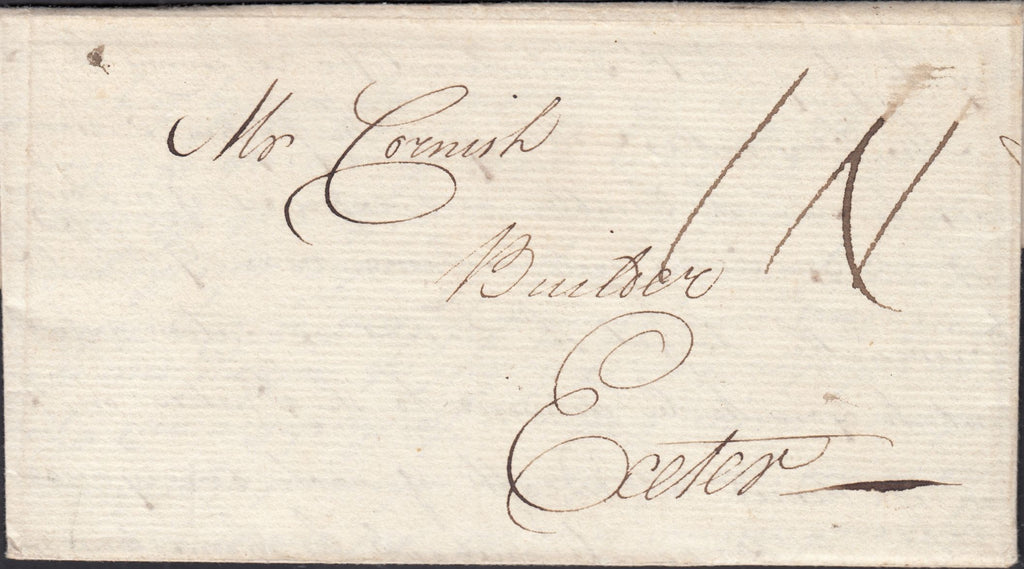 Mr Cornish
Builder
Exeter